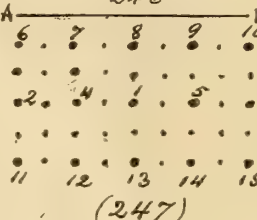 A
6 7 8 9 10
2 4 1 5
11 12 13 14 15
(247)